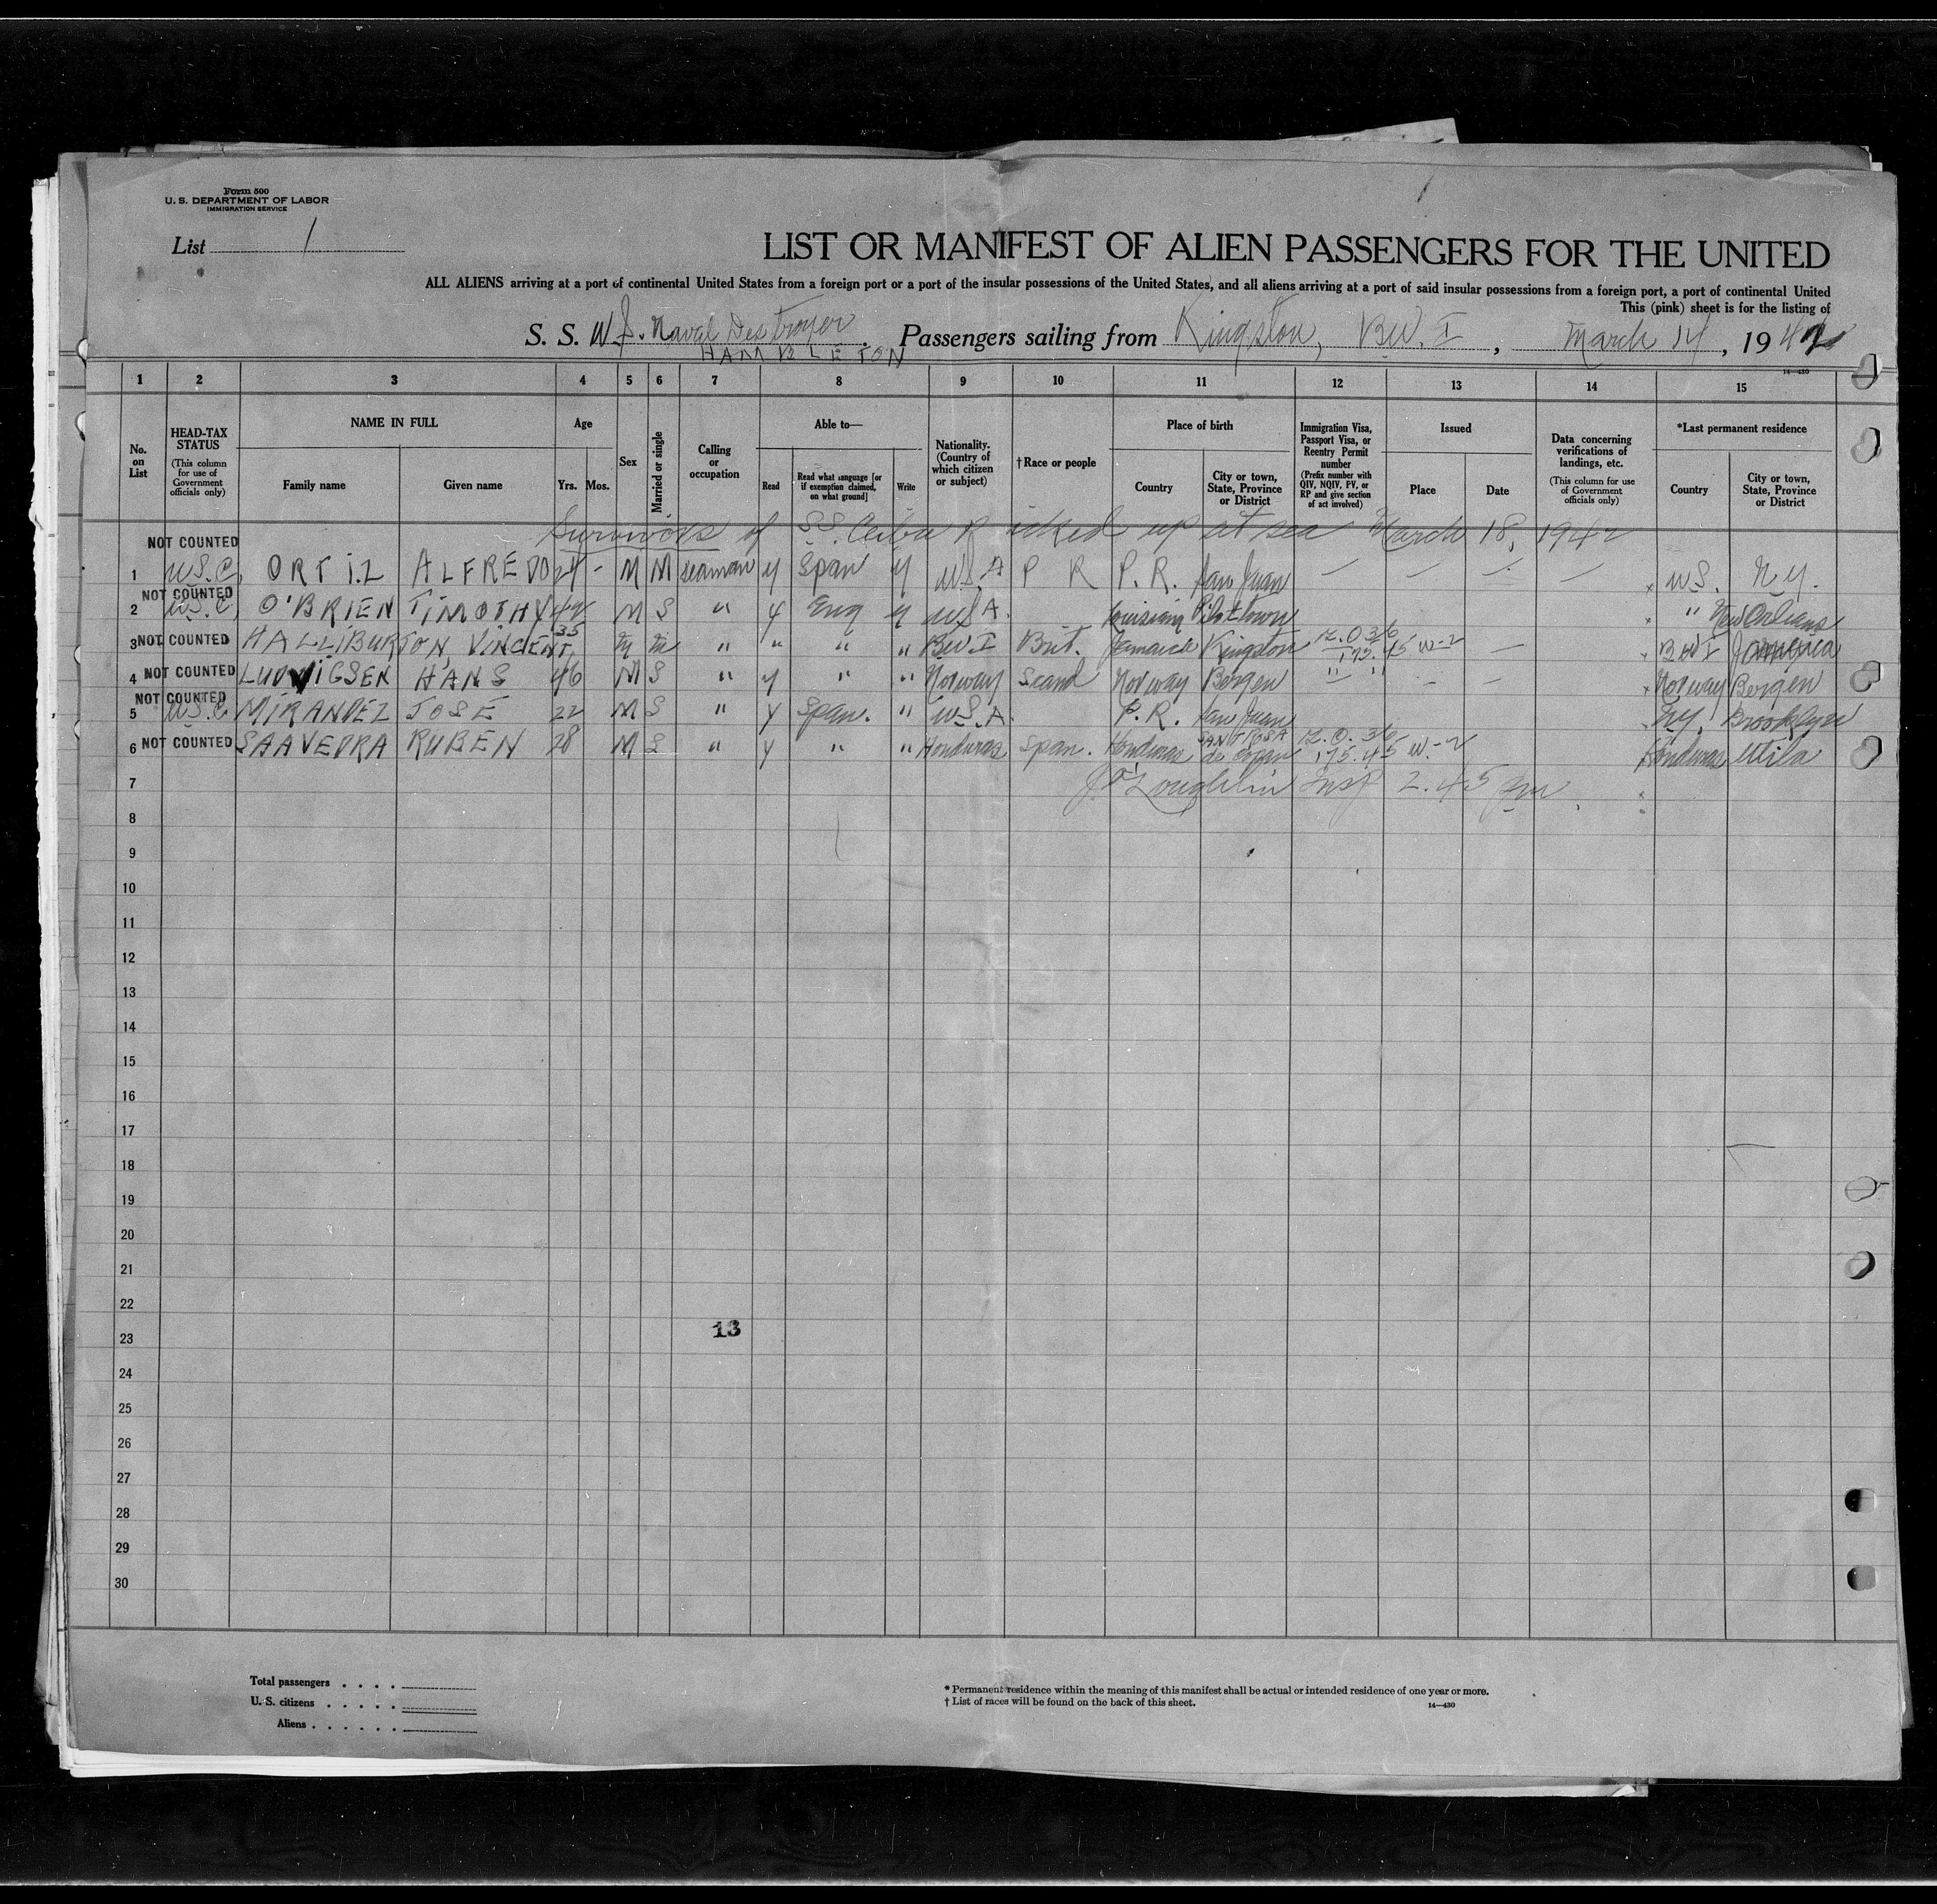 Form 500
U. S. DEPARTMENT OF LABOR
IMMIGRATION SERVICE
List 1
LIST OR MANIFEST OF ALIEN PASSENGERS FOR THE UNITED
ALL ALIENS arriving at a port of continental United States from a foreign port or a port of the insular possessions of the United States, and all aliens arriving at a port of said insular possessions from a foreign port, a port of continental United
This (pink) sheet is for the listing of
S. S. U.S. Naval Destroyer Passengers sailing from Kingston, B.W.I, March 14, 1942
HAMBLETON
14—430
1 2 3 4 5 6 7 8 9 10 11 12 13 14 15
No. on List
HEAD-TAX STATUS
(This column for use of Government officials only)
NAME IN FULL
Family name Given name
Age
Yrs. Mos.
Sex
Married or single
Calling or occupation
Able to—
Read
Read what language [or if exemption claimed, on what ground]
Write
Nationality. (Country of which citizen or subject)
†Race or people
Place of birth
Country
City or town, State, Province or District
Immigration Visa, Passport Visa, or Reentry Permit number
(Prefix number with QIV, NQIV, PV, or RP and give section of act involved)
Issued
Place Date
Data concerning verifications of landings, etc.
(This column for use of Government officials only)
*Last permanent residence
Country
City or town, State, Province or District
Survivors of S.S. Ceiba Picked up at sea March 18, 1942
NOT COUNTED
1 U.S.C. ORTIZ ALFREDO 24 - M M seaman y Span y USA P R P.R. San Juan — — — — U.S. N.Y.
NOT COUNTED
2 U.S.C. O'BRIEN TIMOTHY 42 M S " y Eng y USA. Louisiana Pilottown " New Orleans
3 NOT COUNTED HALLIBURTON, VINCENT, 35 M M " " " " BWI Brit. Jamaica Kingston 175.45 W-2 — BWI Jamaica
4 NOT COUNTED LUDVIGSEN HANS 46 M S " y " " Norway Scand Norway Bergen " " — — Norway Bergen
NOT COUNTED
5 U.S.C MIRANDEZ JOSE 22 M S " y Span. " USA. P.R. San Juan N.Y. Brooklyn
6 NOT COUNTED SAAVEDRA RUBEN 28 M S " y " " Honduras Span. Honduras SANTROSA de Copan 175.45 W-2 Honduras Utila
7 J O'Loughlin Insp 2.45 pm
8
9
10
11
12
13
14
15
16
17
18
19
20
21
22
13
23
24
25
26
27
28
29
30
Total passengers . . . .
U. S. citizens . . . . .
Aliens . . . . . .
* Permanent residence within the meaning of this manifest shall be actual or intended residence of one year or more.
† List of races will be found on the back of this sheet. 14—430